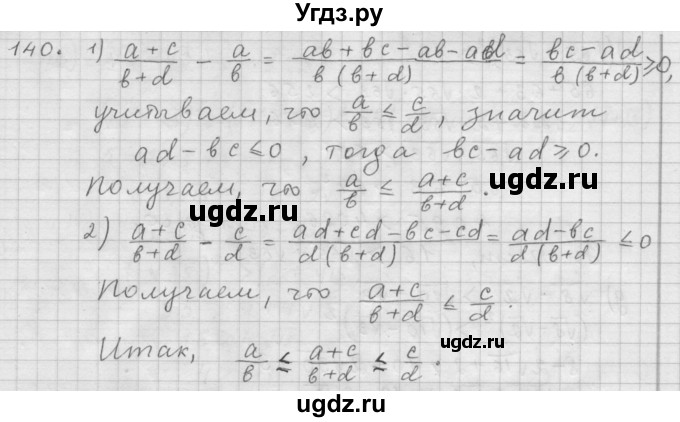 Угдз.ру
140. 1) (a+c)/(b+d) − a/b = (ab+bc−ab−ad)/(b(b+d)) = (bc−ad)/(b(b+d)) ≥ 0,
учитываем, что a/b ≤ c/d, значит
ad−bc ≤ 0, тогда bc−ad ≥ 0.
Получаем, что a/b ≤ (a+c)/(b+d).
ugdz.ru
ugdz.ru
2) (a+c)/(b+d) − c/d = (ad+cd−bc−cd)/(d(b+d)) = (ad−bc)/(d(b+d)) ≤ 0
Получаем, что (a+c)/(b+d) ≤ c/d.
ugdz.ru
Итак, a/b ≤ (a+c)/(b+d) ≤ c/d.
ugdz.ru